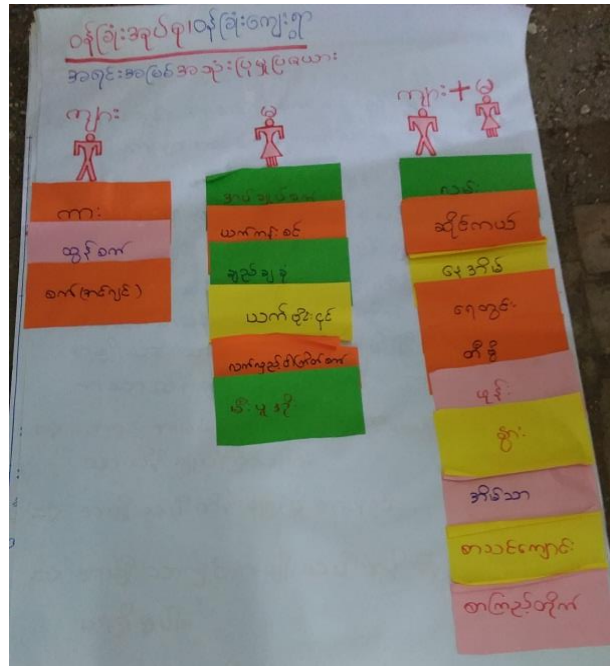 ဝန်ခြုံးအုပ်စု၊ ဝန်ခြုံးကျေးရွာ
အရင်းအမြစ်အသုံးပြုမှုပြဇယား
ကျား
ကား
ထွန်စက်
စက်(အင်ဂျင်)
မ
အပ်ချုပ်စက်
ယက်ကန်းစင်
ချည်ချုံ
ယက်ဖိုးငင်
မီးပူဒိုး
ကျား+မ
လမ်း
ဆိုင်ကယ်
နေအိမ်
ရေတွင်း
တီဗွီ
ဖုန်း
နွား
အိမ်သာ
စာသင်ကျောင်း
စာကြည့်တိုက်